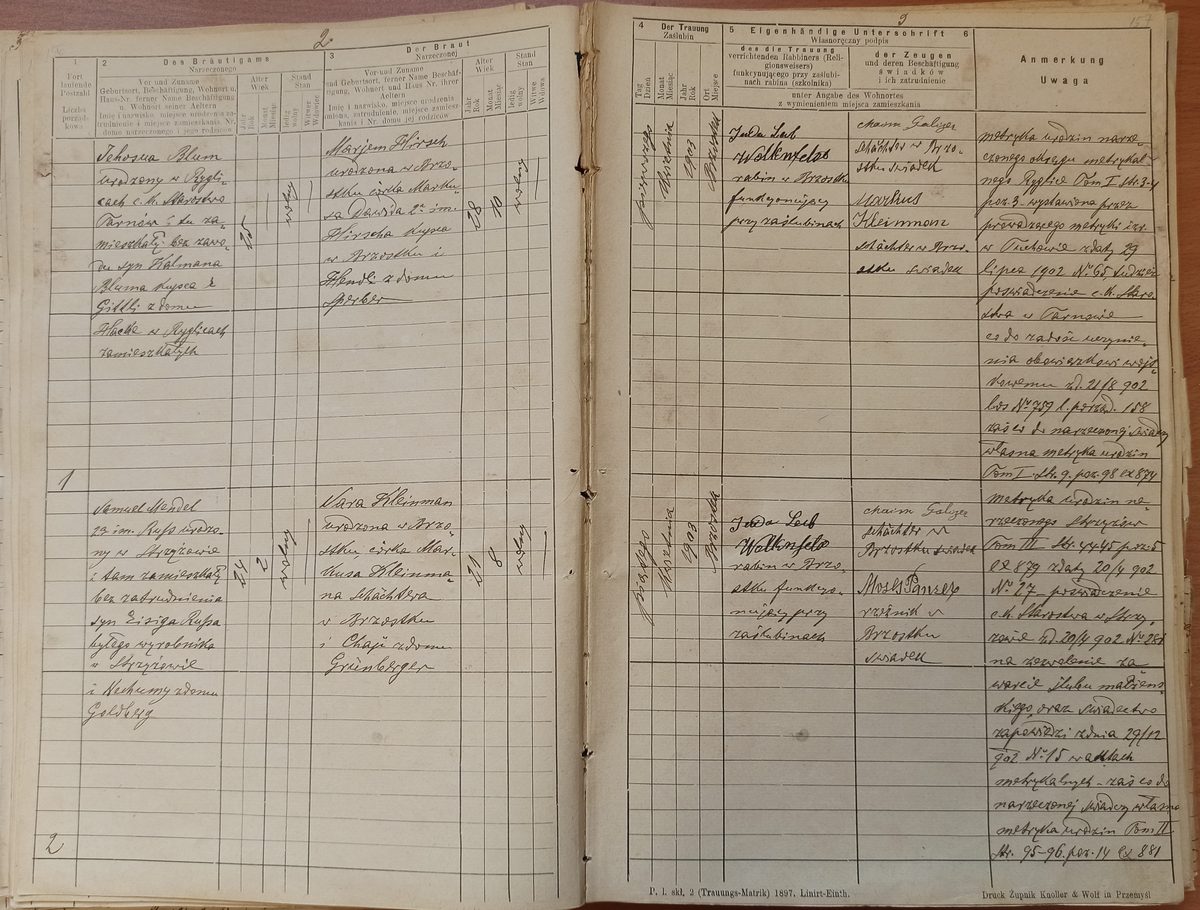 2
1
Fort
laufende
Postzahl
Liczba
porząd-
kowa
2 Des Bräutigams
Narzeczonego
Vor und Zuname
Geburtsort, Beschäftigung, Wohnort u.
Haus-Nr. ferner Name Beschäftigung
u. Wohnort seiner Aeltern
Imię i nazwisko, miejsce urodzenia za-
trudnienie i miejsce zamieszkania, Nr.
domu narzeczonego i jego rodziców
Alter
Wiek
Jahr
Rok
Monat
Miesiąc
Stand
Stan
ledig
wolny
Witwer
Wdowiec
3 Der Braut
Narzeczonej
Vor und Zuname
und Geburtsort, ferner Name Beschäf-
tigung, Wohnort und Haus Nr. ihrer
Aeltern
Imię i nazwisko, miejsce urodzenia
Alter
Wiek
Jahr
Rok
Monat
Miesiąc
Stand
Stan
ledig
wolny
Witwe
Wdowa
Jehosua Blum
urodzony w Rygli-
cach c.k. Starostwo
Tarnów i tu za-
mieszkały bez zawo-
du syn Kalmana
Bluma kupca i
Gittli z domu
w Ryglicach
zamieszkałych
25
wolny
Marjem Hirsch
urodzona w Brzo-
stku córka Marku-
sa Dawida 2ga im.
Hirscha kupca
w Brzostku i
Hendli z domu
Sperber
28
10
wolny
1
Samuel Mendel
2ga im. Russ urodzo-
ny w Strzyżowie
i tam zamieszkały
bez zatrudnienia
syn Eisiga Russa
byłego wyrobnika
w Strzyżowie
i Nechumy z domu
Goldberg
24
2
wolny
Sara Kleinman
urodzona w Brzo-
stku córka Mar-
kusa Kleinma-
na Schächtera
w Brzostku
i Chaji z domu
Grünberger
21
8
wolny
2
3
157
4 Der Trauung
Zaślubin
Tag
Dzień
Monat
Miesiąc
Jahr
Rok
Ort
Miejsce
5 Eigenhändige Unterschrift 6
Własnoręczny podpis
des die Trauung
verrichtenden Rabbiners (Reli-
gionsweisers)
funkcyonującego przy zaślubi-
nach rabina (szkolnika)
der Zeugen
und deren Beschäftigung
świadków
i ich zatrudnienie
unter Angabe des Wohnortes
z wymienieniem miejsca zamieszkania
Anmerkung
Uwaga
pierwszego
Kwietnia
1903
Brzostku
Juda Leib
Wolkenfeld
rabin w Brzostku
funkcyonujący
przy zaślubinach
Chaim Galizer
schächter w Brzo-
stku świadek
Markus
Kleinman
schächter w Brzo-
stku świadek
metryka urodzin narze-
czonego okręgu metrykal-
nego Ryglice Tom I str. 3-4
poz. 3 wystawiona przez
prowadzącego metryki izr.
w Tuchowie z daty 29
lipca 1902 No 65 tudzież
poświadczenie c.k. Staro-
stwa w Tarnowie
co do zadość uczynie-
nia obowiązkowi wojs-
kowemu z d. 21/8 902
los No 759 l. porząd. 158
zaś co do narzeczonej świadczy
własna metryka urodzin
Tom I str. 9. poz. 98 ex 874
piątego
1903
Brzostek
Juda Leib
Wolkenfeld
rabin w Brzo-
stku funkcyo-
nujący przy
zaślubinach
Chaim Galizer
schächter w
Brzostku świadek
Moses Panzer
rzeźnik w
Brzostku
świadek
metryka urodzin na-
rzeczonego Strzyżów
Tom III str. 44-45 poz. 5
ex 879 z daty 20/4 902
No 27 poświadczenie
c.k. Starostwa w Strzy-
żowie z d 20/4 902 No 281
na zezwolenie za-
warcie ślubu małżeńs-
kiego, oraz świadectwo
zapowiedzi z dnia 29/12
902 No 15 w aktach
metrykalnych - zaś co do
narzeczonej świadczy własna
metryka urodzin Tom II
str. 95-96. poz. 14 ex 881
P. l. skł. 2 (Trauungs-Matrik) 1897. Linirt-Einth.
Druck Żupnik Knoller & Wolf in Przemyśl